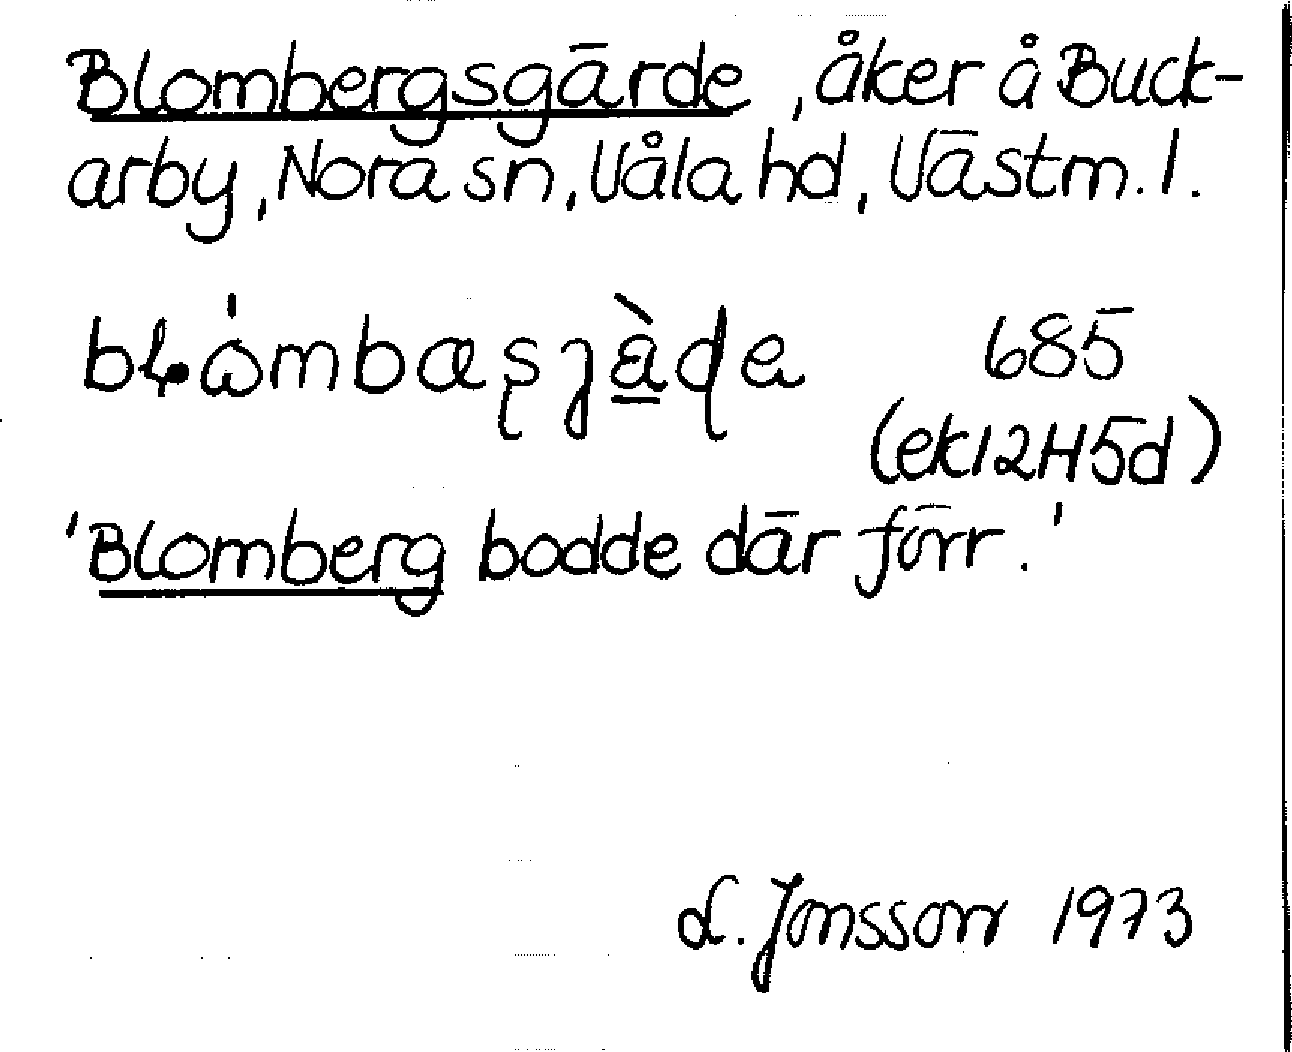 Blombergsgärde, åker å Buck-
arby, Nora sn, Våla hd, Västm. l.
685
(ek 12H5d)
'Blomberg bodde där förr.'
L. Jonsson 1973